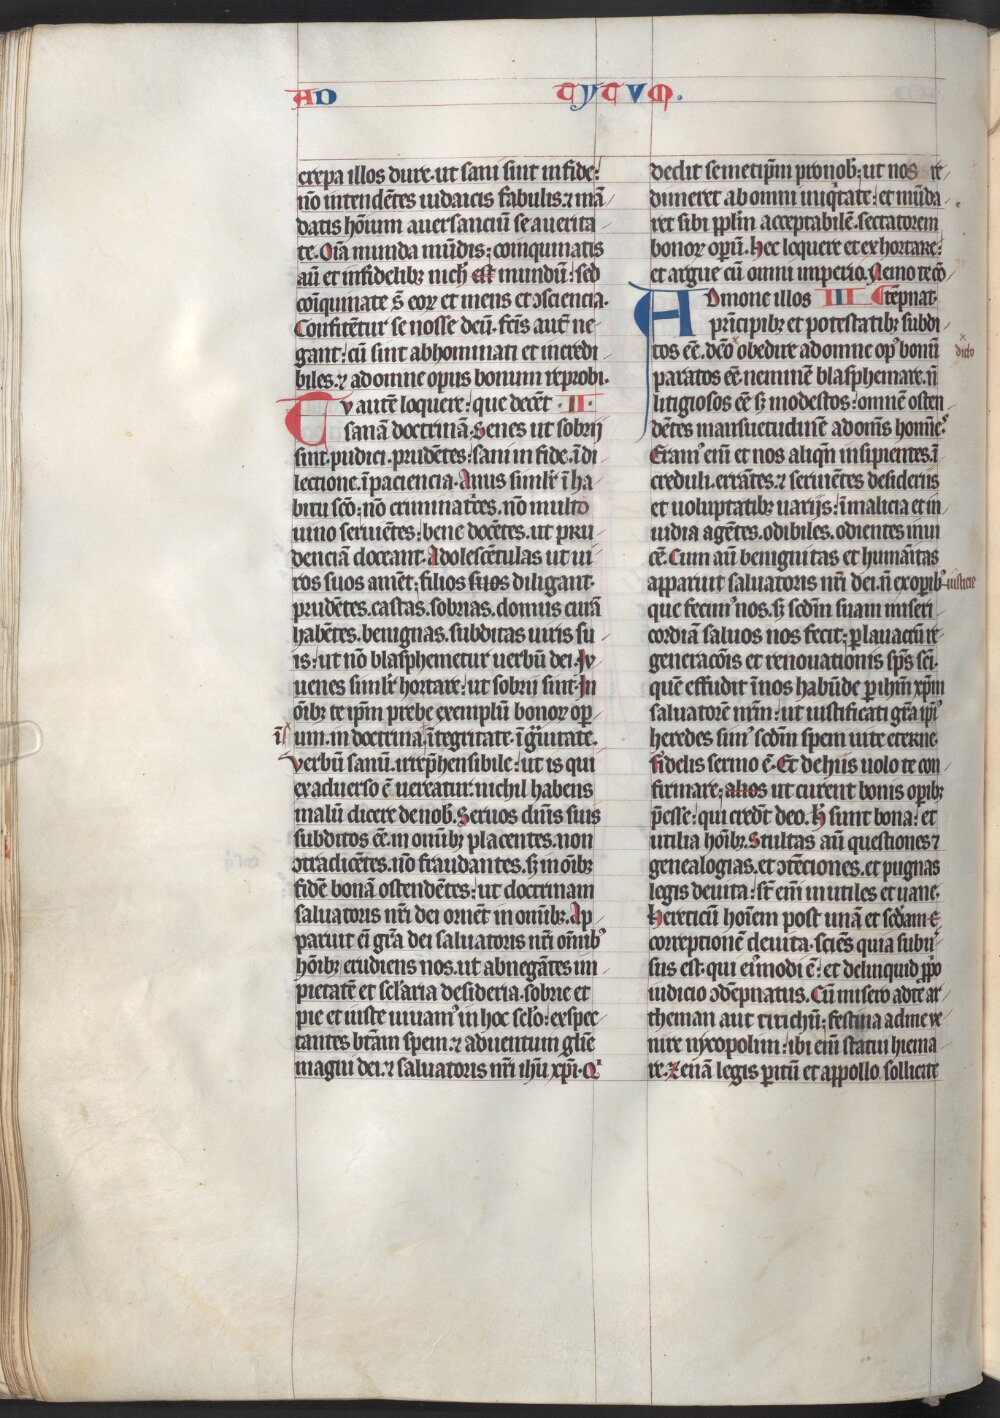 AD TYTVM.
crepa illos dure. ut sani sint in fide:
nō intendētes iudaicis fabulis. ⁊ mā
datis hōium auersanciū se a uerita
te. Oīa munda mūdis: coinquinatis
aū et infidelibꝫ nich̄ est mundū: sed
coīquinate s̄ eoꝝ et mens et ɔsciencia.
Confitētur se nosse deū. fc̄is aut̄ ne
gant: cū sint abhominati et incredi
biles. ⁊ ad omne opus bonum reprobi.
Tv autē loquere: que decēt . II.
sanā doctrinā. Senes ut sobrij
sint. pudici. prudētes: sani in fide. ī di
lectione. ī paciencia. Anus simlr̄ ī ha
bitu sc̄o: nō criminatr̄ces. nō multo
uino seruiētes: bene docētes. ut pru
denciā doceant. Adolescētulas ut ui
ros suos amēt: filios suos diligant.
prudētes. castas. sobrias. domus curā
habētes. benignas. subditas uiris su
is: ut nō blasphemetur uerbū dei. Iv
uenes simlr̄ hortare: ut sobrij sint. In
ōibꝫ te ip̄m prebe exemplū bonoꝝ op̄
um. in doctrina. ītegritate. ī grauitate.
ī
Verbū sanū. irrep̄hensibile: ut is qui
ex aduerso ē uereatur. nichil habens
malū dicere de nob̄. Seruos dn̄is suis
subditos eē. in omībꝫ placentes. non
ɔtradicētes. nō fraudantes. sꝫ in ōibꝫ
fidē bonā ostendētes: ut doctrinam
saluatoris nr̄i dei ornēt in omībꝫ. Ap
paruit ei̅ gr̄a dei saluatoris nr̄i om̄ibꝫ
hōibꝫ erudiens nos. ut abnegātes im
pietatē et sclaria desideria. sobrie et
pie et iuste uiuamꝰ in hoc sclo: exspec
tantes btām spem. ⁊ aduentum glīe
magni dei. ⁊ saluatoris nr̄i ihū xp̄i. Qͥ
dedit semetip̄m pro nob̄: ut nos re
dimeret ab omni iniqͥtate: et mūda
ret sibi pp̄lm acceptabilē. sectatorem
bonoꝝ opeꝝ. Hec loquere et exhortare:
et argue cū omni imperio. Nemo te cō
tēpnat.
Admone illos III
prīcipibꝫ et potestatibꝫ subdi
tos eē. dc̄o obedire ad omne opꝰ bonū
dicto
paratos eē. neminē blasphemare. n̄
litigiosos eē sꝫ modestos: omnē osten
dētes mansuetudinē ad om̄s homīes.
Eramꝰ eīm et nos aliqn̄ insipientes. ī
creduli. errātes. ⁊ seruiētes desideriis
et uoluptatibꝫ uarijs: ī malicia et in
uidia agētes. odibiles. odientes inui
cē. Cum aū benignitas et humaītas
apparuit saluatoris nr̄i dei. n̄ ex op̄ibꝫ
iusticie
que fecimꝰ nos. sꝫ scd̄m suam miseri
cordiā saluos nos fecit: ꝑ lauacrū re
generacōis et renouationis sp̄s sc̄i.
quē effudit ī nos habūde ꝑ ihm̄ xp̄m
saluatorē nr̄m: ut iustificati gr̄a ip̄iꝰ
heredes simꝰ scd̄m spem uite eterne.
Fidelis sermo ē. Et de hiis uolo te con
firmare: alios ut curent bonis op̄ibꝫ
p̄esse: qui credūt deo. Hec sunt bona: et
utilia hōibꝫ. Stultas aū questiones ⁊
genealogias. et ɔtēciones. et pugnas
legis deuita: st̄ eīm inutiles et uane.
Hereticū hoīem post unā et scd̄am
correptionē deuita. sciēs quia subu̅
sus est. qui eiꝰmodi ē: et delinquid ꝓpo
iudicio ɔdēpnatus. Cū misero ad te ar
theman aut titichū: festina ad me ve
nire nycopolim: ibi eīm statui hiema
re. Zenā legis ꝑitū et appollo sollicite